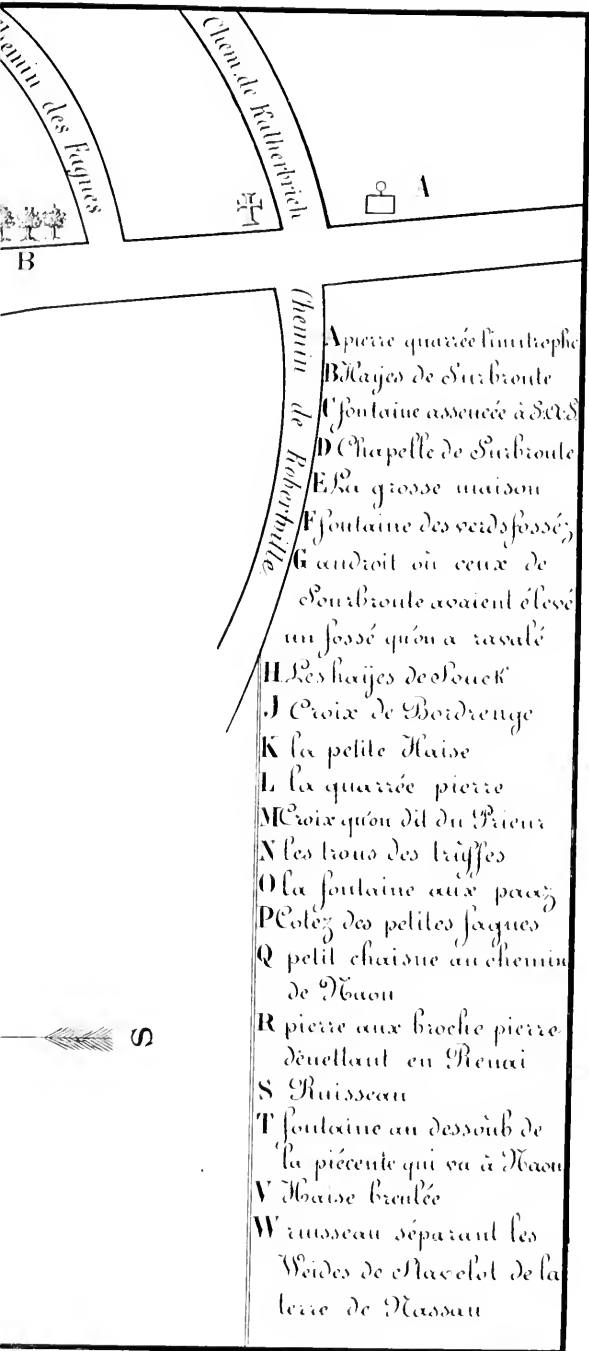 Chemin des Fagnes
Chem. de Katherbrich
A
B
Chemin de Robertville
A pierre quarrée limitrophe
B Hayes de Surbroute
C fontaine assencée à S.A.S.
D Chapelle de Surbroute
E La grosse maison
F fontaine des verds fosséz
G androit où ceux de
Sourbroute avaient élevé
un fossé qu'on a ravalé
H Les haÿes de Souck
J Croix de Bordrenge
K la petite Haise
L la quarrée pierre
M Croix qu'on dit du Prieur
N les trous des trùffes
O la fontaine aux paaz
P Cotéz des petites fagnes
Q petit chaisne au chemin
de Naou
R pierre aux broche pierre
dènettant en Renai
S Ruisseau
T fontaine au dessoùb de
la piécente qui va à Naou
V Haise breulée
W ruisseau séparant les
Weides de Stavelot de la
terre de Nassau
S